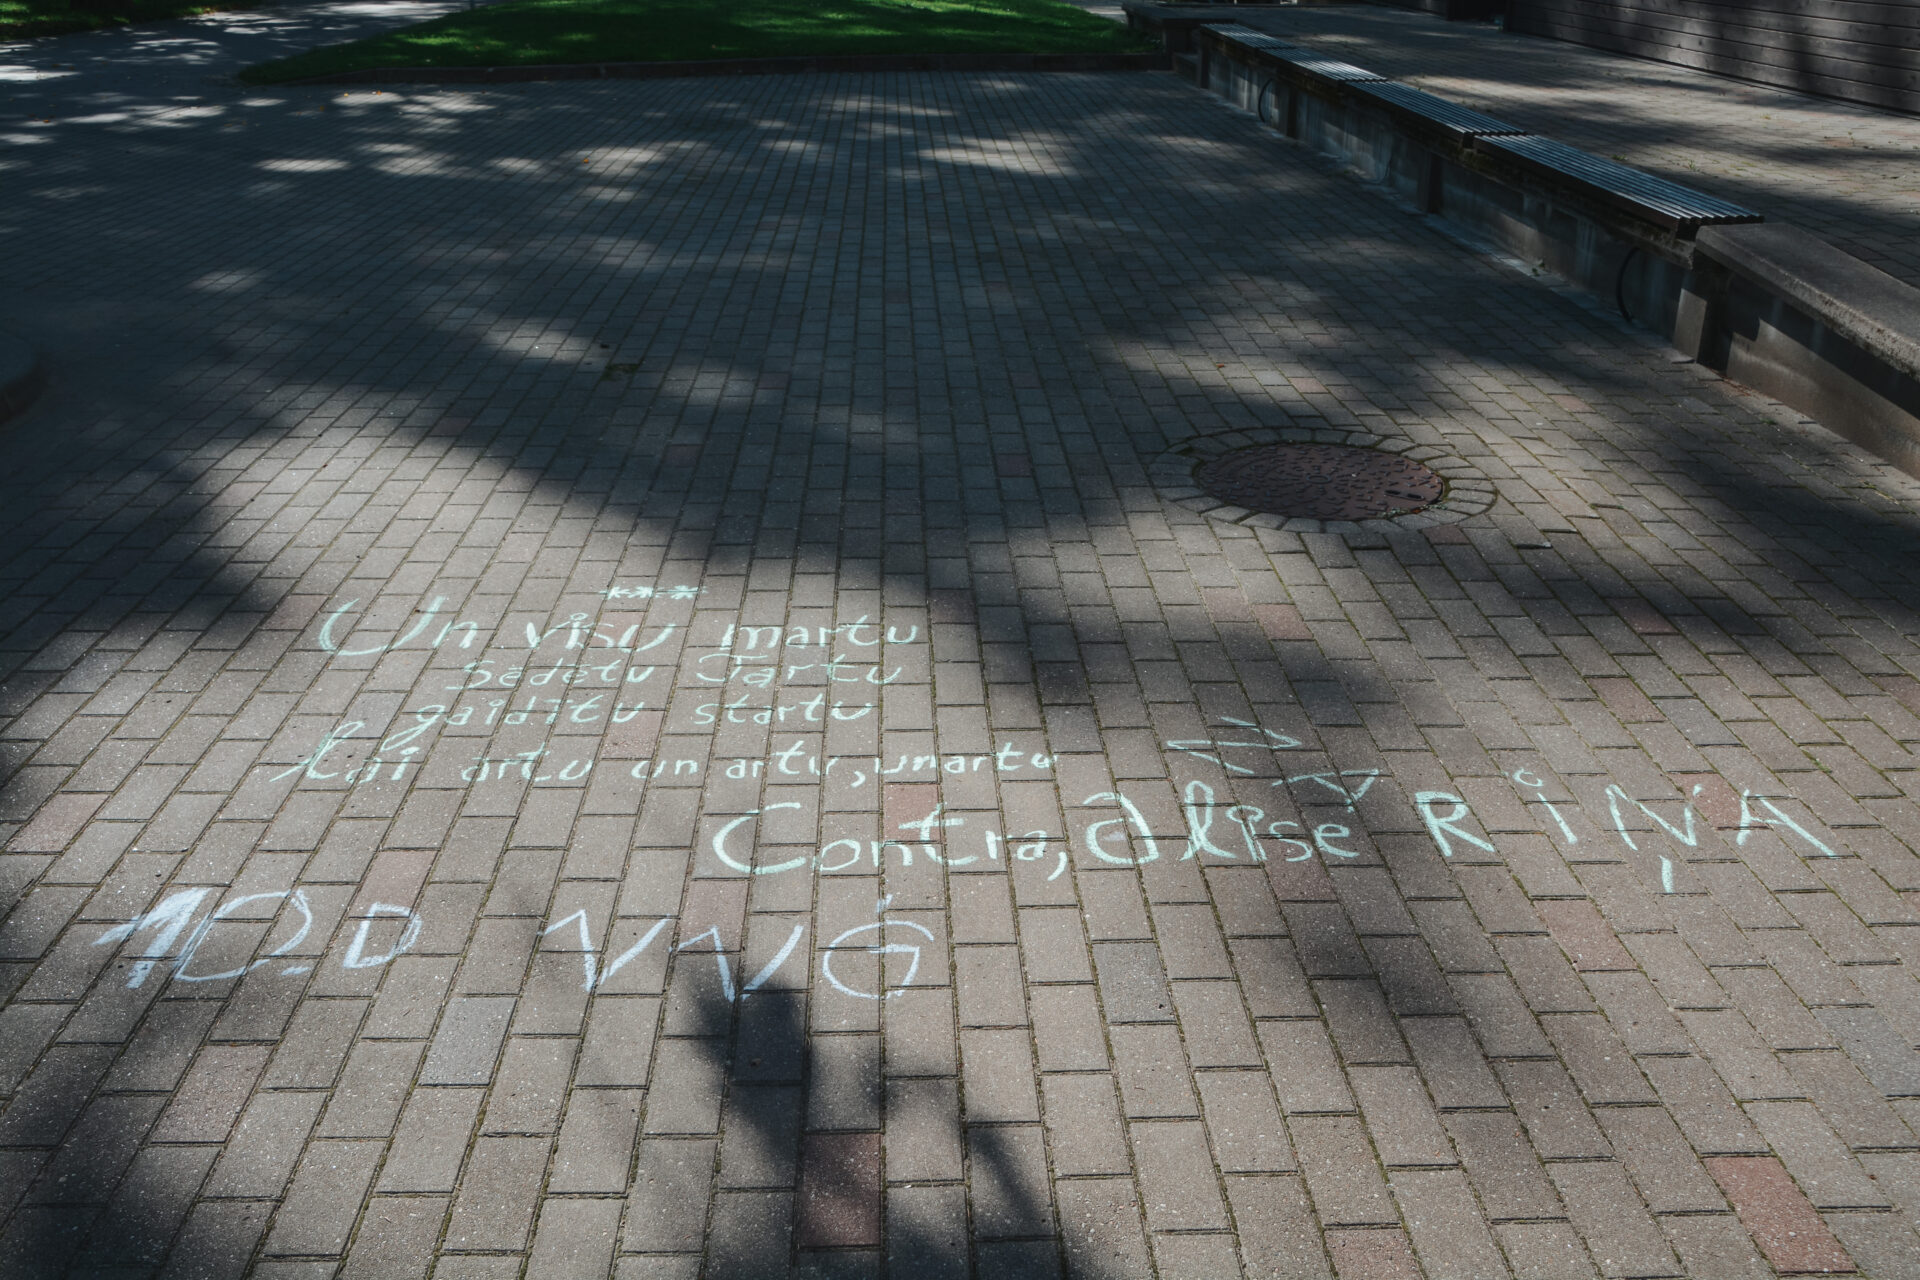 ***
Un visu martu
sēdētu Tartu
gaidītu startu
lai artu un artu, un artu
Contra,
RIŅĀ
10.D VVĢ